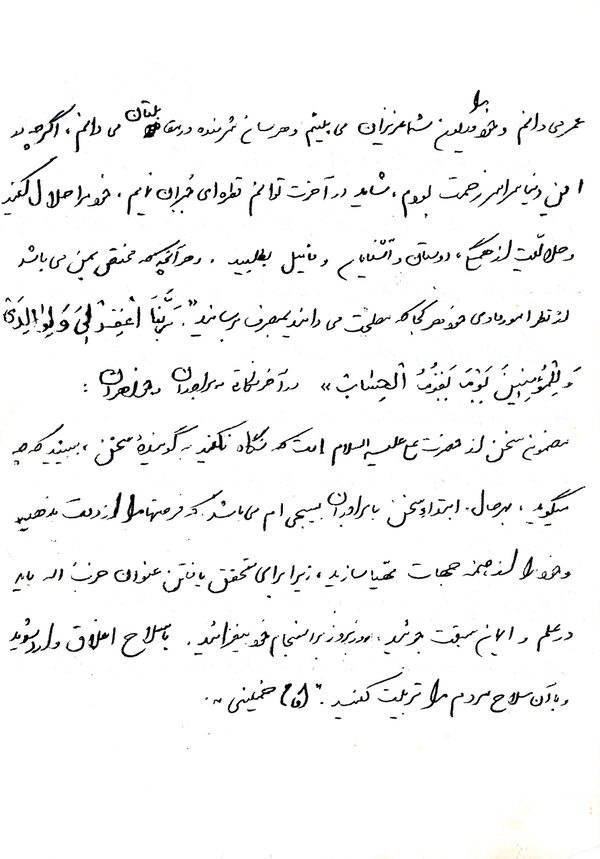 عمر می دانم و خود را مدیون شما عزیزان می بینم و هر سان شرمنده در مقابلتان می دانم، اگر چه در
این دنیا سراسر زحمت بودم، شاید در آخرت توانم قطره ای جبران نمایم. خود مرا حلال کنید
و حلالیت از همگی، دوستان و آشنایان و فامیل بطلبید. و هر آنچه که مختص بمن می باشد
از نظر امور مادی خود هر کجا که مصلحت می دانید بمصرف برسانید. «رَبَّنَا اغْفِرْ لِی وَلِوالِدَیَّ
وَ لِلْمُؤمِنِینَ یَوْمَ یَقُومُ الْحِسٰابْ» در آخر نکاتی به برادران و خواهران :
مضمون سخن از حضرت علی علیه السلام است که نگاه نکنید به گویندهٔ سخن، ببینید که چه
میگوید، بهرحال. ابتداءً سخن با برادران بسیجی ام می باشد که فرصتها را از دست ندهید
و خود را از همه جهات مهیا سازید، زیرا برای تحقق یافتن عنوان حزب اله باید
در علم و ایمان سبقت جوئید، روز بروز بر انسجام خود بیفزائید. با سلاح اخلاق وارد شوید
و با آن سلاح مردم را تربیت کنید. "امام خمینی"